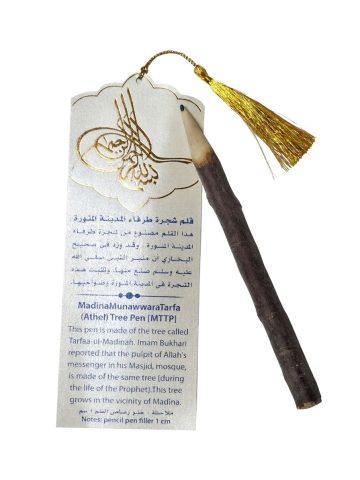 قلم شجرة طرفاء المدينة المنورة
هذا القلم مصنوع من شجرة طرفاء
المدينة المنورة . وقد ورد في صحيح
البخاري أن منبر النبي صلى الله
عليه وسلم صنع منها. وتنبت هذه
الشجرة في المدينة المنورة وضواحيها.
MadinaMunawwaraTarfa
(Athel) Tree Pen [MTTP]
This pen is made of the tree called
Tarfaa-ul-Madinah. Imam Bukhari
reported that the pulpit of Allah's
messenger in his Masjid, mosque,
is made of the same tree [during
the life of the Prophet).This tree
grows in the vicinity of Madina.
ملاحظة : حشو رصاص القلم ١ سم
Notes: pencil pen filler 1 cm